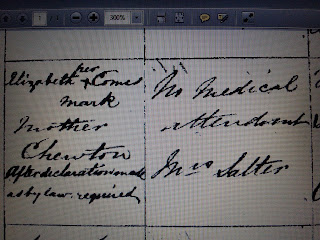 1
300%
her
Elizabeth + Comes
mark
Mother
Chewton
After declaration made
as by law required
No Medical
attendant
Mrs Salter